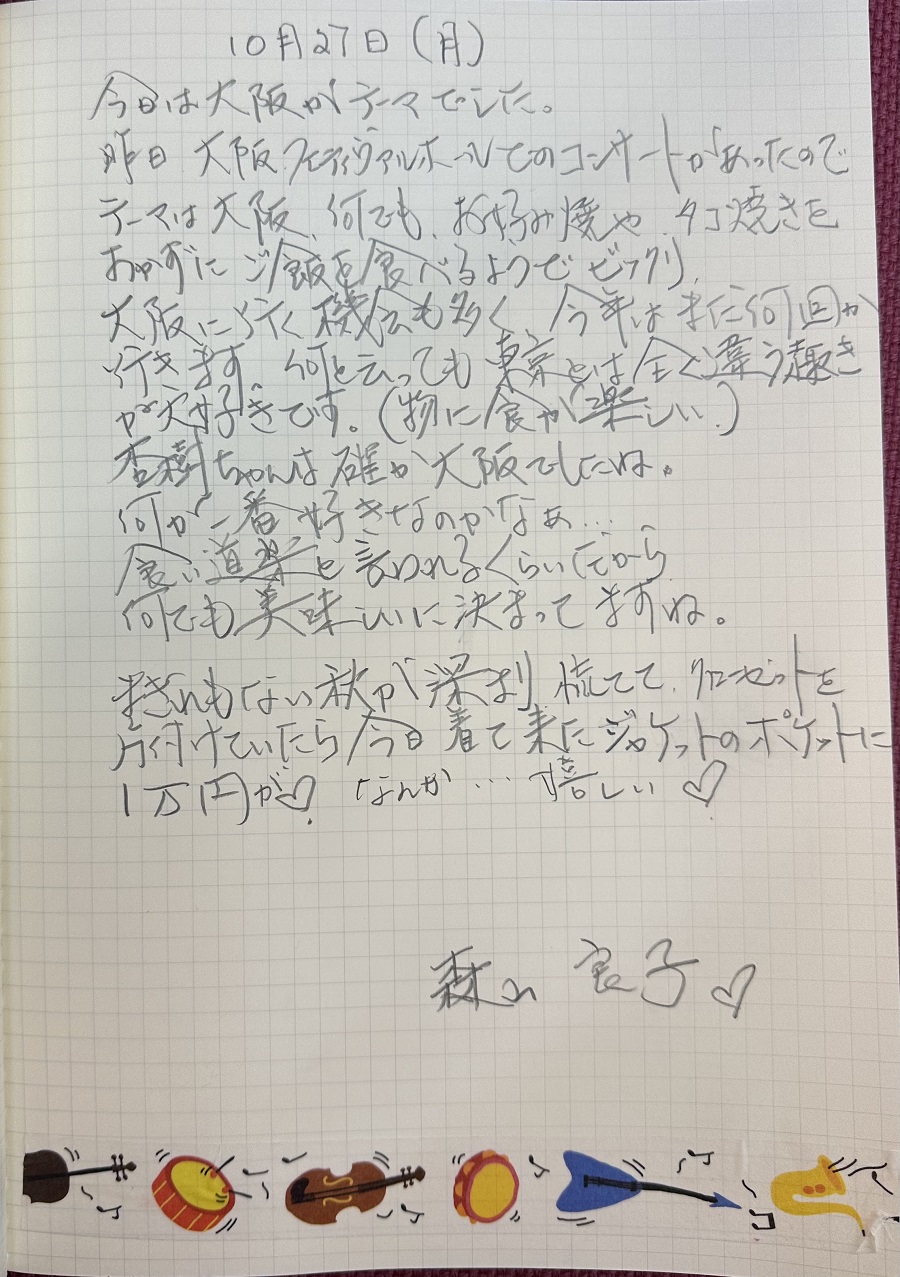 10月27日(月)
今日は大阪がテーマでした。
昨日 大阪フェスティヴァルホールでのコンサートがあったので
テーマは大阪、何でも、お好み焼や タコ焼きを
おかずに ご飯を食べるようで ビックリ、
大阪に行く機会も多く 今年はまだ何回か
行きます 何と云っても 東京とは全く違う趣き
が大好きです。(物に食が楽しい)
杏樹ちゃんは確か大阪でしたね。
何が一番好きなのかなぁ…
食い道楽と言われるくらいだから
何でも美味しいに決まってますね。
まぎれもない秋が深まり 慌てて、クローゼットを
片付けていたら 今日着て来たジャケットのポケットに
1万円が♡ なんか… 嬉しい♡
森山 良子♡